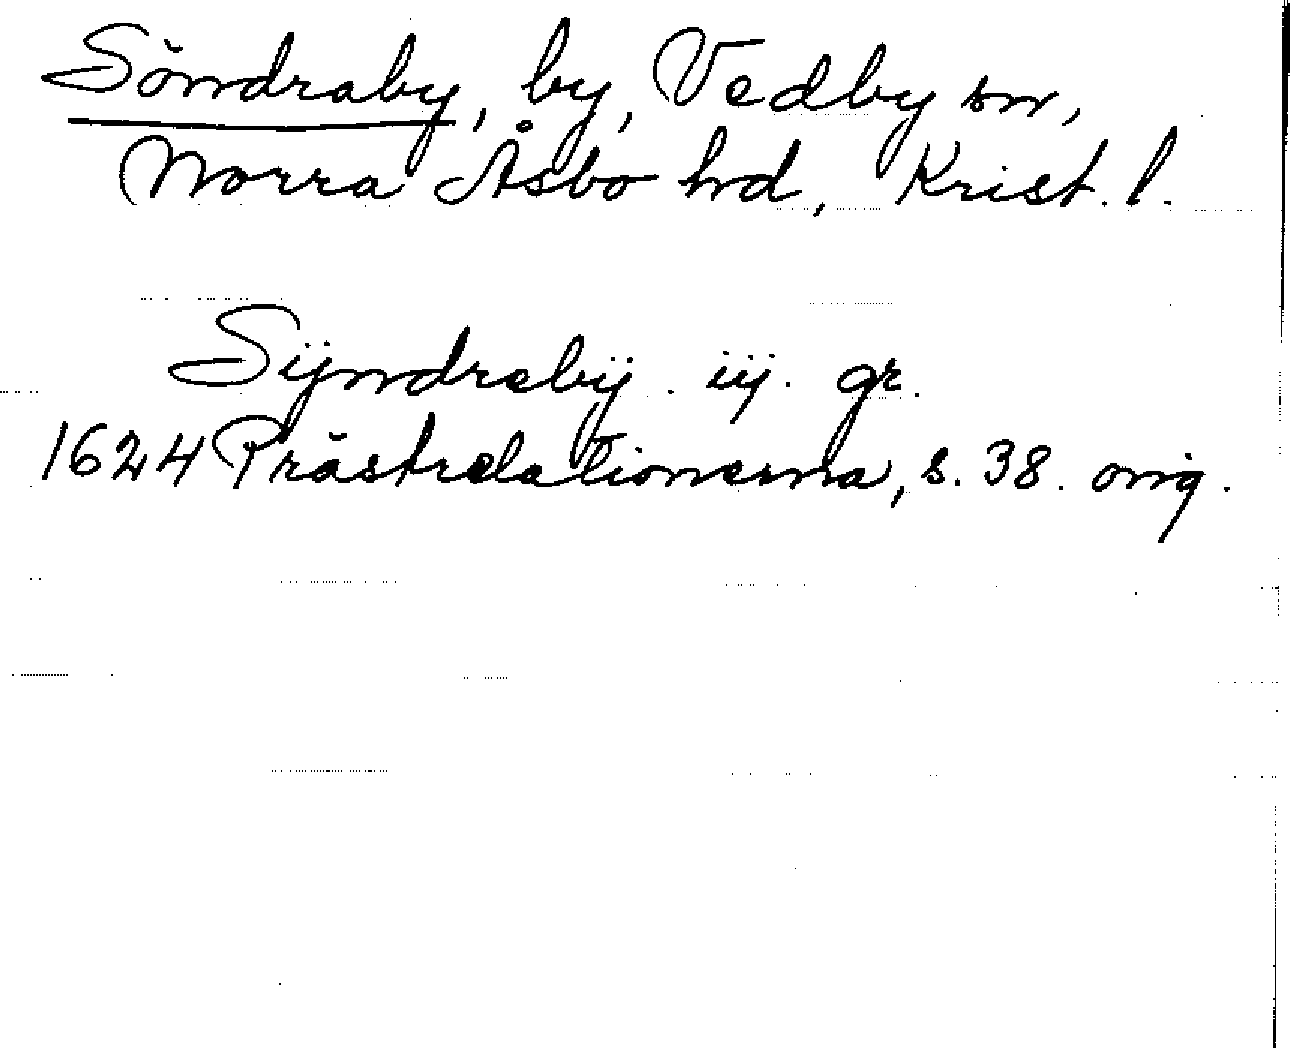 Söndraby, by, Vedby sn,
Norra Åsbo hd, Krist. l.
Sÿndrebÿ. iij. gr.
1624 Prästrelationerna, s. 38. orig.